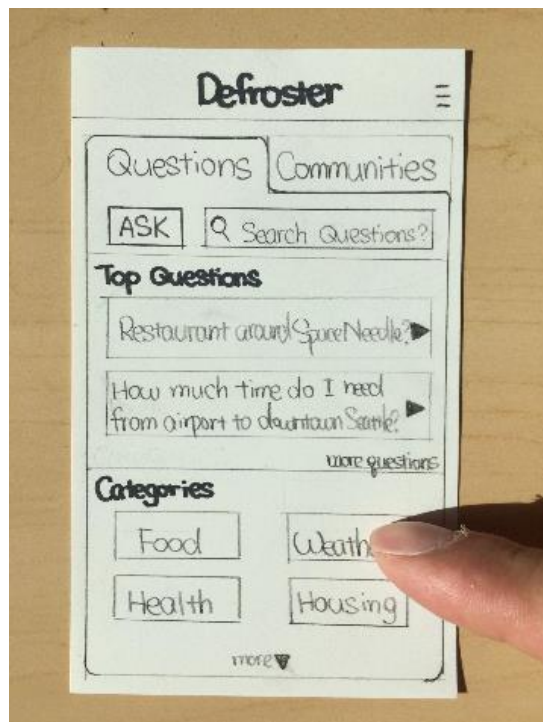 Defroster
Questions Communities
ASK Search Questions?
Top Questions
Restaurant around Space Needle?
How much time do I need
from airport to downtown Seattle?
more questions
Categories
Food Weath
Health Housing
more